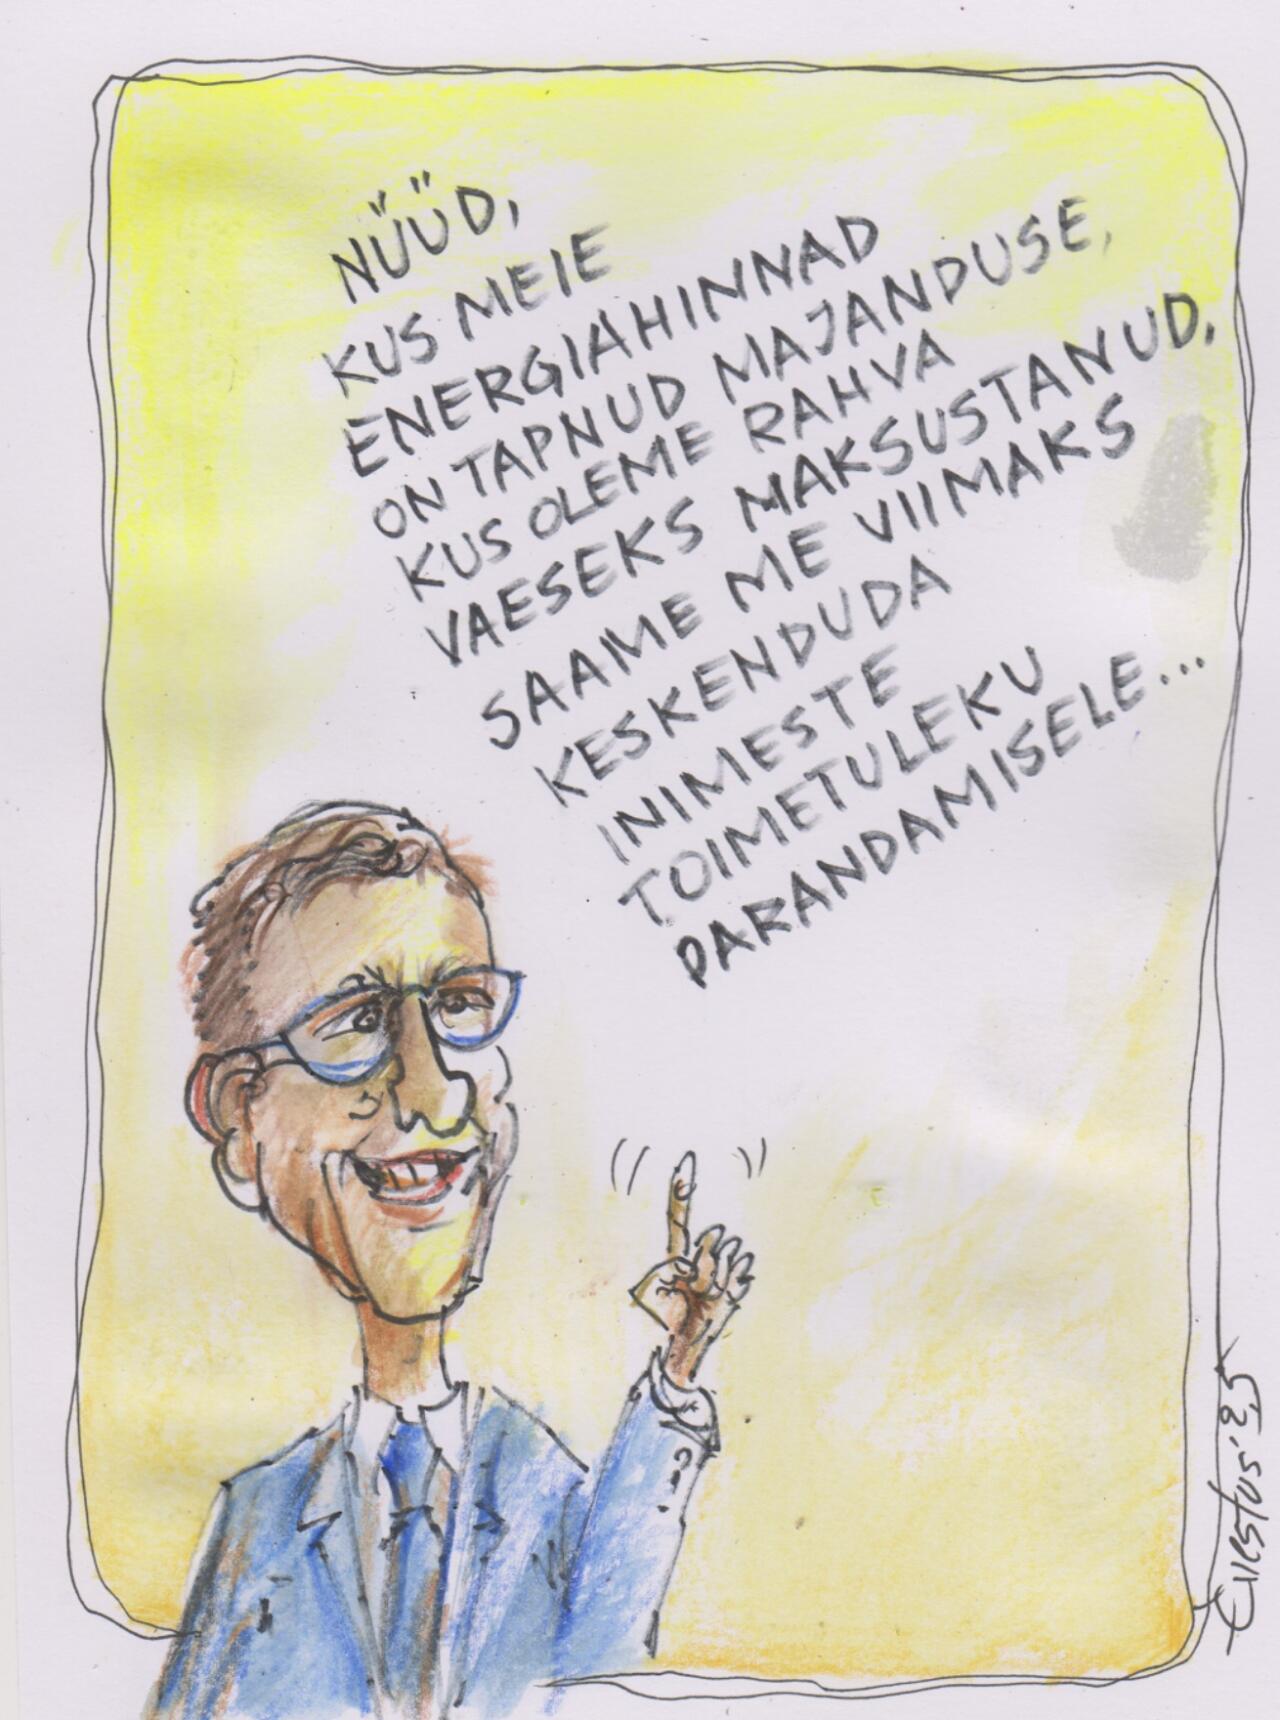 NÜÜD,
KUS MEIE
ENERGIAHINNAD
ON TAPNUD MAJANDUSE,
KUS OLEME RAHVA
VAESEKS MAKSUSTANUD,
SAAME ME VIIMAKS
KESKENDUDA
INIMESTE
TOIMETULEKU
PARANDAMISELE...
Evestus'25